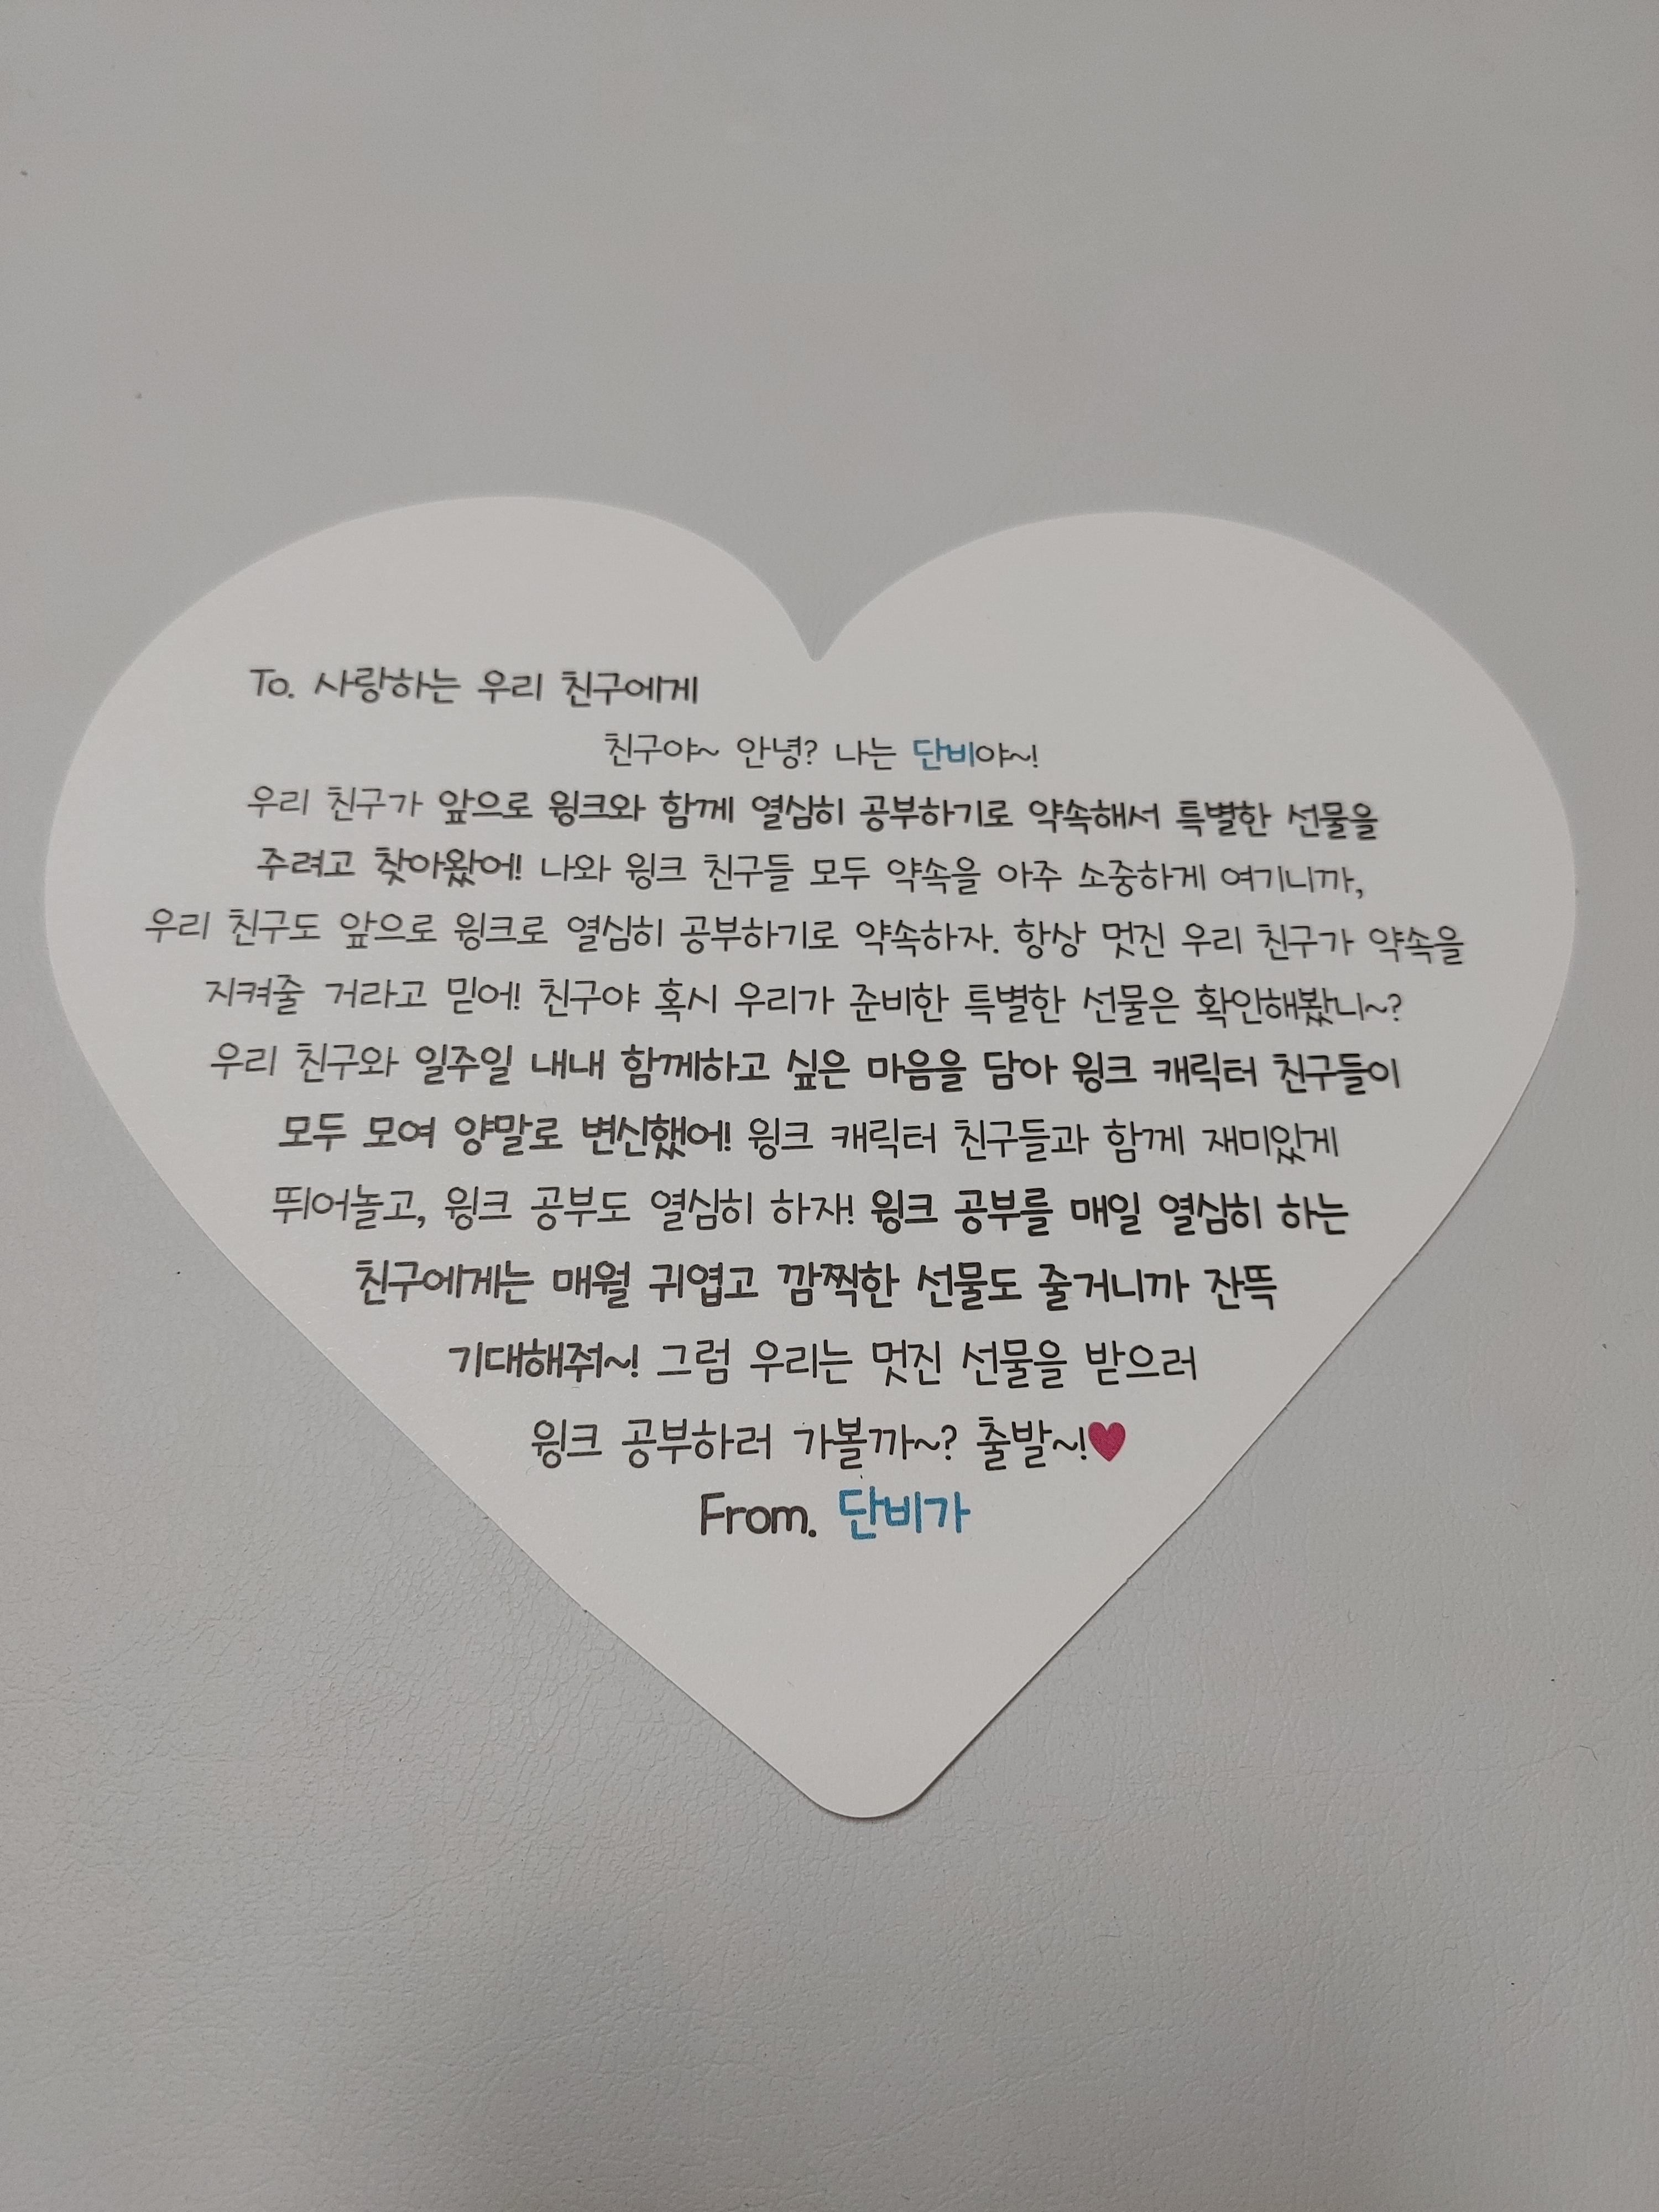 To. 사랑하는 우리 친구에게
친구야~ 안녕? 나는 단비야~!
우리 친구가 앞으로 윙크와 함께 열심히 공부하기로 약속해서 특별한 선물을
주려고 찾아왔어! 나와 윙크 친구들 모두 약속을 아주 소중하게 여기니까,
우리 친구도 앞으로 윙크로 열심히 공부하기로 약속하자. 항상 멋진 우리 친구가 약속을
지켜줄 거라고 믿어! 친구야 혹시 우리가 준비한 특별한 선물은 확인해봤니~?
우리 친구와 일주일 내내 함께하고 싶은 마음을 담아 윙크 캐릭터 친구들이
모두 모여 양말로 변신했어! 윙크 캐릭터 친구들과 함께 재미있게
뛰어놀고, 윙크 공부도 열심히 하자! 윙크 공부를 매일 열심히 하는
친구에게는 매월 귀엽고 깜찍한 선물도 줄거니까 잔뜩
기대해줘~! 그럼 우리는 멋진 선물을 받으러
윙크 공부하러 가볼까~? 출발~!♥
From. 단비가